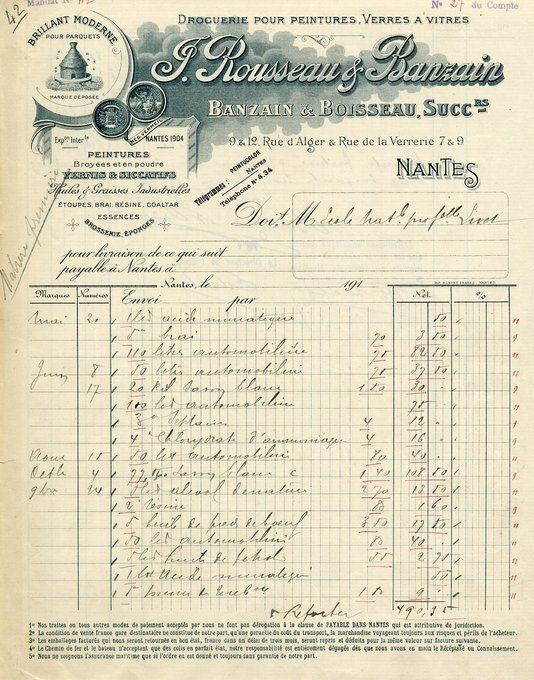 42
Nº 27 du Compte
DROGUERIE POUR PEINTURES, VERRES A VITRES
BRILLANT MODERNE
POUR PARQUETS
MARQUE DÉPOSÉE
J. ROUSSEAU & BANZAIN
BANZAIN & BOISSEAU, SUCCRS
Expon Interle NANTES 1904
MED. VERMEIL
9 & 12, Rue d'Alger & Rue de la Verrerie 7 & 9
NANTES
PEINTURES
Broyées et en poudre
VERNIS & SICCATIFS
Huiles & Graisses Industrielles
ÉTOUPES, BRAI, RÉSINE, COALTAR
ESSENCES
BROSSERIE, ÉPONGES
Télégrammes: PEINTUCOLOR NANTES
Téléphone Nº 4.34
Doit, M École natle profelle Livet
Matière première
pour livraison de ce qui suit
payable à Nantes à
Nantes, le 191
Marques Numéros Envoi par Net %
mai 20 1 lit acide muriatique 50
5 brai 70 3 50
110 litres automobiline 75 82 50
Juin 8 50 litres automobiline 75 37 50
17 20 savon blanc 1 50 30
100 lit automobiline 75
4 12
4 Chlorydrate d'ammoniaque 4 16
Aout 50 lit automobiline 80 40
Octb 4 savon blanc 1 40 108 50
9bre 24 5 lit alcool denaturé 2 70 13 50
2 résine 80 1 60
5 huile de pied de boeuf 3 50 17 50
50 lit automobiline 80 40
5 lit huile de pétrole 55 2 75
1 lit acide muriatique 50
5 essence de 1 80 9
à Reporter 490,35
1º Nos traites ou tous autres modes de paiement acceptés par nous ne font pas dérogation à la clause de PAYABLE DANS NANTES qui est attributive de juridiction.
2º La condition de vente franco gare destinataire ne constitue de notre part, qu'une garantie du coût du transport, la marchandise voyageant toujours aux risques et périls de l'acheteur.
3º Les emballages facturés qui nous seront retournés en bon état, franco dans un délai de trois mois, seront repris et déduits pour la même valeur sur facture suivante.
4º Le Chemin de fer et le bateau n'acceptant que des colis en parfait état, notre responsabilité est entièrement dégagée dès que nous avons en main le Récépissé ou Connaissement.
5º Nous ne soignons l'assurance maritime que si l'ordre en est donné et toujours sans garantie de notre part.